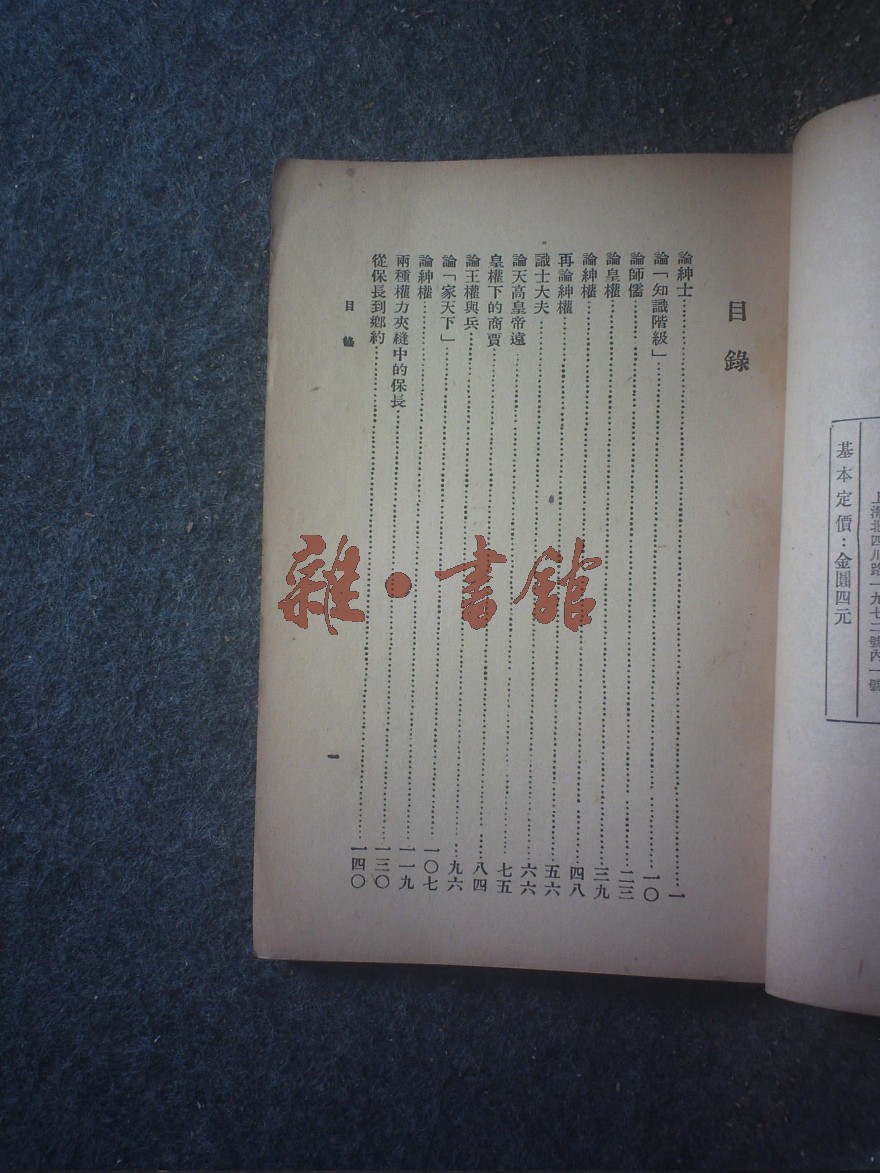 上海北四川路一九七二號內一號
基本定價：金圓四元
目錄
論紳士…………一
論「知識階級」…………一〇
論師儒…………二三
論皇權…………三九
論紳權…………四八
再論紳權…………五六
識士大夫…………六六
論天高皇帝遠…………七五
皇權下的商賈…………八四
論王權與兵…………九六
論「家天下」…………一〇七
論紳權…………一一九
兩種權力夾縫中的保長…………一三〇
從保長到鄉約…………一四〇
目錄
一
雜·書館